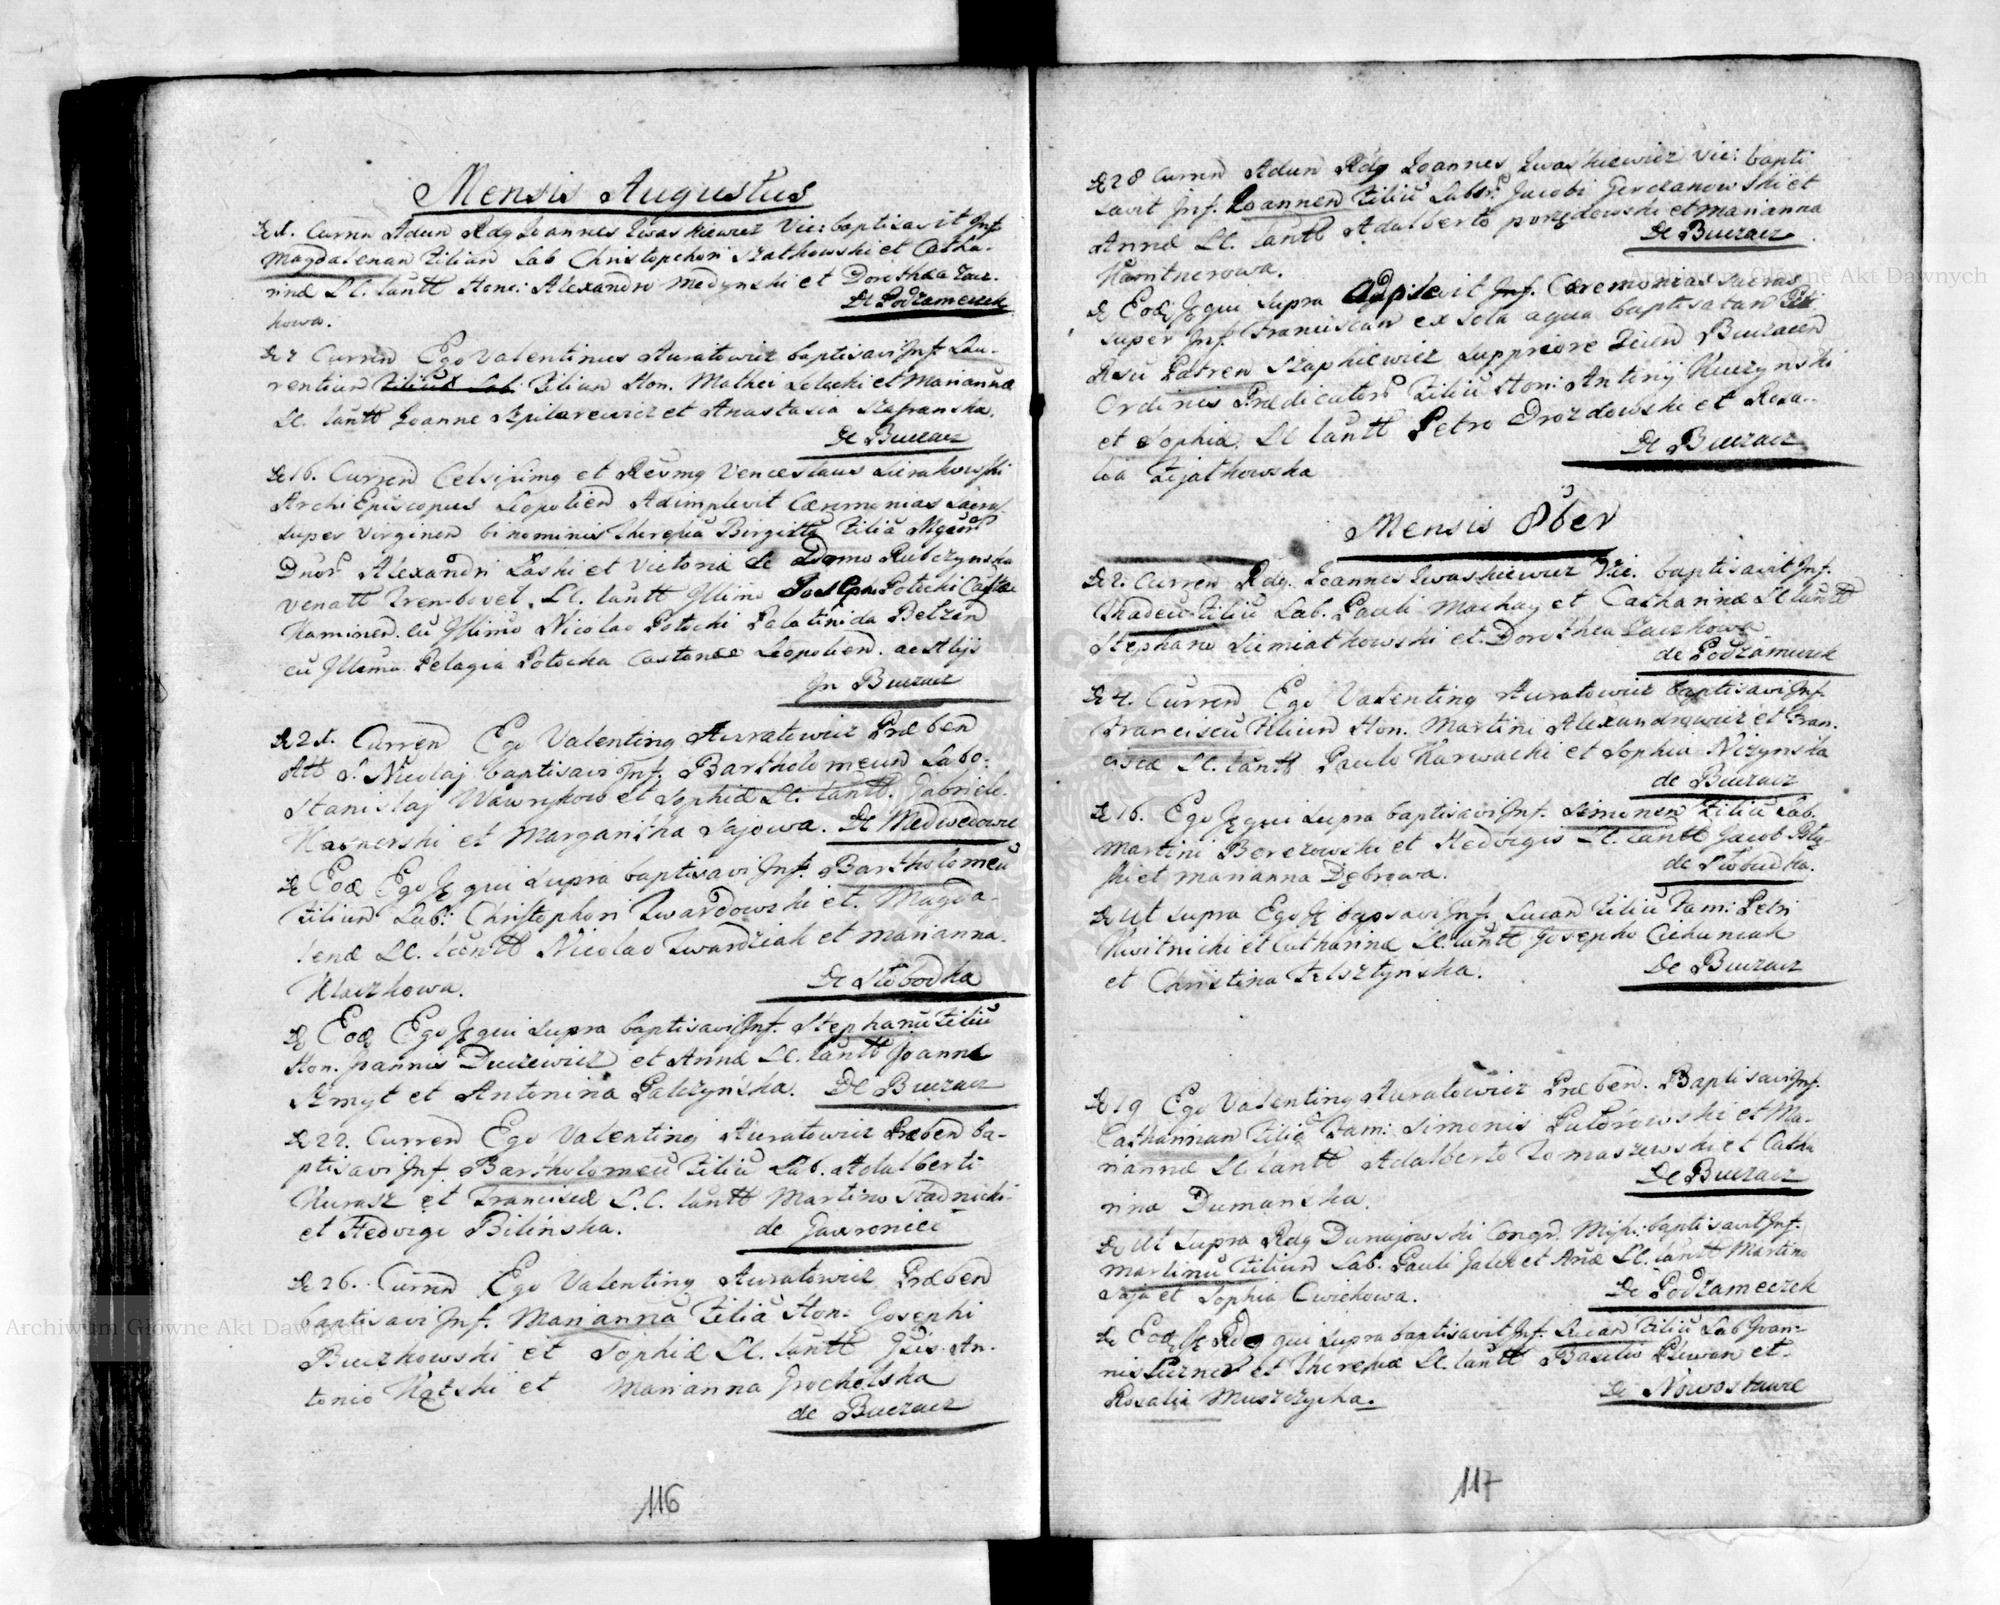 Mensis Augustus
De 1. Curren Adm Rdg Joannes Iwaszkiewicz Vic: baptisavit Inf.
Magdalenam Filiam Lab Christophori Szatkowski et Catha-
rinæ LC. Lantt Hone: Alexandro Medynski et Dorothea Zacz-
De Podzameczek
kowa.
De 7 Curren Ego Valentinus Auratowicz baptisavi Inf. Lau-
rentium Filium Hon. Mathei Selecki et Marianna
LC. Lantt Joanne Szpilarewicz et Anastasia Szafranska.
De Buczacz
De 16. Curren Celsissimg et Resmg Venceslaus Sierakowski
Archi Episcopus Leopolien Adimplevit Cæremonias Sacras
super Virginem binominis Theresia Birgitta Filiũ Mgcor
Dnor Alexandri Laski et Victoriæ de Domo Rubczynska
Venatt Trembovel. LC. Lantt Illimo Joseph Potocki Castæ
Kaminen. cũ Illimo Nicolao Potocki Palatinida Belzen
cũ Illima Pelagia Potocka Castanee Leopolien. ac Alijs
In Buczacz
De 21. Curren Ego Valenting Auratowicz Præben
Att S. Nicolaj baptisavi Inf. Bartholomeum Labo:
Stanislaj Wawrykow et Sophiæ LC. Lantt. Gabriele
Kasnerski et Margaritha Sajowa. De Medwedowce
De Eod Ego Je qui supra baptisavi Inf. Bartholomeũ
Filium Lab: Christophori Twardowski et Magda-
lenæ LC. Lantt Nicolao Twardziak et Marianna
Klaczkowa. De Słobodka
De Eod Ego Je qui supra baptisavi Inf. Stephanũ Filiũ
Hon. Joannis Duczewicz et Annæ LC. Lantt Joanne
Szmyt et Antonina Palczynska. De Buczacz
De 22. Curren Ego Valenting Auratowicz Præben ba-
ptisavi Inf. Bartholomeũ Filiũ Lab. Adalberti
Kurasz et Franciscæ L.C. Lantt Martino Stadnicki
et Hedvige Bilinska. de Gawronice
De 26. Curren Ego Valenting Auratowicz Præben
baptisavi Inf. Mariannã Filiã Hon: Josephi
Buczkowski et Sophiæ LC. Lantt Gsis An-
tonio Kątski et Marianna Grocholska
de Buczacz
116
De 28 Curren Adm Rdg Joannes Iwaszkiewicz Vic: bapti
savit Inf. Joannem Filiũ Labor: Jacobi Gerczanowski et
Annæ LC. Lantt Adalberto porędowski et Marianna
Kamtnerowa. De Buczacz
De Eod Je qui supra Adplevit Inf. Cæremonias sacras
super Inf. Franciscam ex sola aqua baptisatam Per
Rsu Patrem Szaphiewicz Suppriore Item Buczacen
Ordinis Prædicator Filiũ Hon: Antonij Kuczynski
et Sophia. LC Lantt Petro Drozdowski et Rosa-
De Buczacz
lia Zijatkowska
Mensis 8ber
De 2. Curren Rdg. Joannes Iwaszkiewicz Vic. baptisavit Inf.
Thadeũ Filiũ Lab. Pauli Machay et Catharinæ LC Lantt
Stephano Siemiatkowski et Dorothea Zaczkowa
de Podzameczek
De 4. Curren Ego Valenting Auratowicz baptisavi Inf.
Franciscũ Filium Hon. Martini Alexandrowicz et Fran-
ciscæ LC. Lantt Paulo Karwacki et Sophia Nizynska
de Buczacz
De 16. Ego Je qui supra baptisavi Inf. Simonem Filiũ Lab.
Martini Berezowski et Hedvigis LC. Lantt Jacob
ski et Marianna Dębrowa. de Słobudka.
De Ut supra Ego Je bapsavi Inf. Lucam Filiũ Fam: Petri
Kwitnicki et Catharinæ LC. Lantt Josepho Cichaniak
et Christina Felsztynska. De Buczacz
De 19 Ego Valenting Auratowicz Præben. Baptisavi Inf.
Catharinam Filiã Fam: Simonis Putorowski et Ma-
riannæ LC. Lantt Adalberto Tomaszewski et Catha
rina Dumanska. De Buczacz
De Ut Supra Rdg Dunajowski Congr. Mish: baptisavit Inf.
Martinũ Filium Lab. Pauli Galek et Anæ LC. Lantt Martino
Saja et Sophia Cwiekowa. De Podzameczek
De Eod Je Rdg qui supra baptisavit Inf. Lucam Filiũ Lab Joan-
nis et Theresiæ LC. Lantt Basilio Pliwan et
Rosalia Muszczycka. De Nowostawce
117
Archiwum Główne Akt Dawnych
Archiwum Główne Akt Dawnych